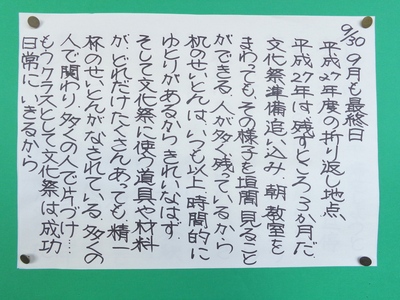 9/30 9月も最終日
平成27年度の折り返し地点
平成27年は、残すところ3か月だ
文化祭準備追い込み、朝、教室を
まわっても、その様子を垣間見ること
ができる。人が多く残っているから
机のせいとんは、いつも以上、時間的に
ゆとりがあるからきれいなはず…
そして文化祭に使う道具や材料
が、どれだけたくさんあっても、精一
杯のせいとんがなされている。多くの
人で関わり、多くの人で片づけ……
もうクラスとして文化祭は成功
日常にいきるから